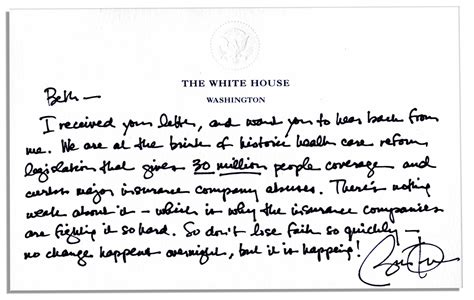 THE WHITE HOUSE
WASHINGTON
Beth —
I received your letter, and want you to hear back from
me. We are at the brink of historic health care reform
legislation that gives 30 million people coverage and
curbs major insurance company abuses. There's nothing
weak about it — which is why the insurance companies
are fighting it so hard. So don't lose faith so quickly —
no change happens overnight, but it is happening!